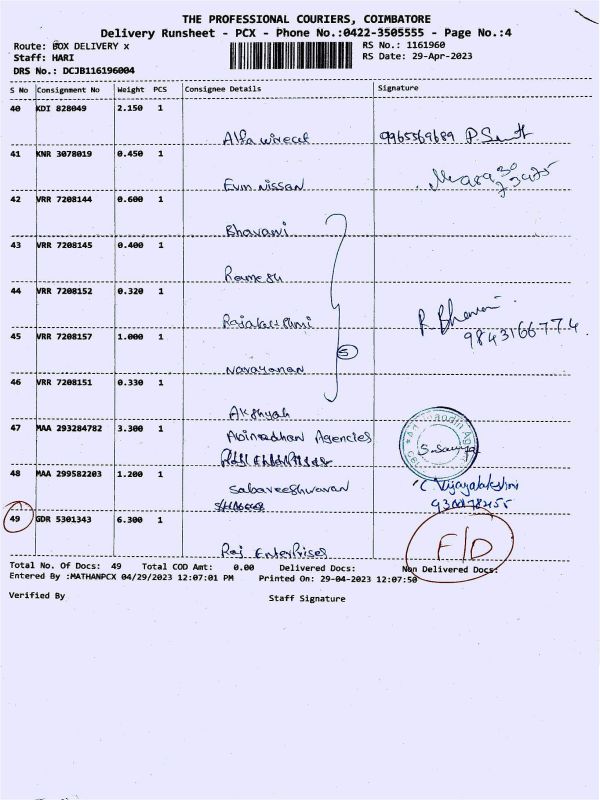 THE PROFESSIONAL COURIERS, COIMBATORE
Delivery Runsheet - PCX - Phone No.:0422-3505555 - Page No.:4
Route: BOX DELIVERY x
RS No.: 1161960
Staff: HARI
RS Date: 29-Apr-2023
DRS No.: DCJB116196004
S No Consignment No Weight PCS Consignee Details Signature
40 KDI 828049 2.150 1
Alfa wirecut 9965569689
41 KNR 3078019 0.450 1
Evm Nissan
42 VRR 7208144 0.600 1
Bhavani
43 VRR 7208145 0.400 1
Ramesh
44 VRR 7208152 0.320 1
Rajalakshmi R Bhavani
9843166774
45 VRR 7208157 1.000 1
5
Narayanan
46 VRR 7208151 0.330 1
Akshyah
47 MAA 293284782 3.300 1
Abimadhan Agencies
48 MAA 299582203 1.200 1
Sabareeshwaran C Vijayalakshmi
49 GDR 5301343 6.300 1
Raj Enterprises F/D
Total No. Of Docs: 49 Total COD Amt: 0.00 Delivered Docs: Non Delivered Docs:
Entered By :MATHANPCX 04/29/2023 12:07:01 PM Printed On: 29-04-2023 12:07:50
Verified By Staff Signature